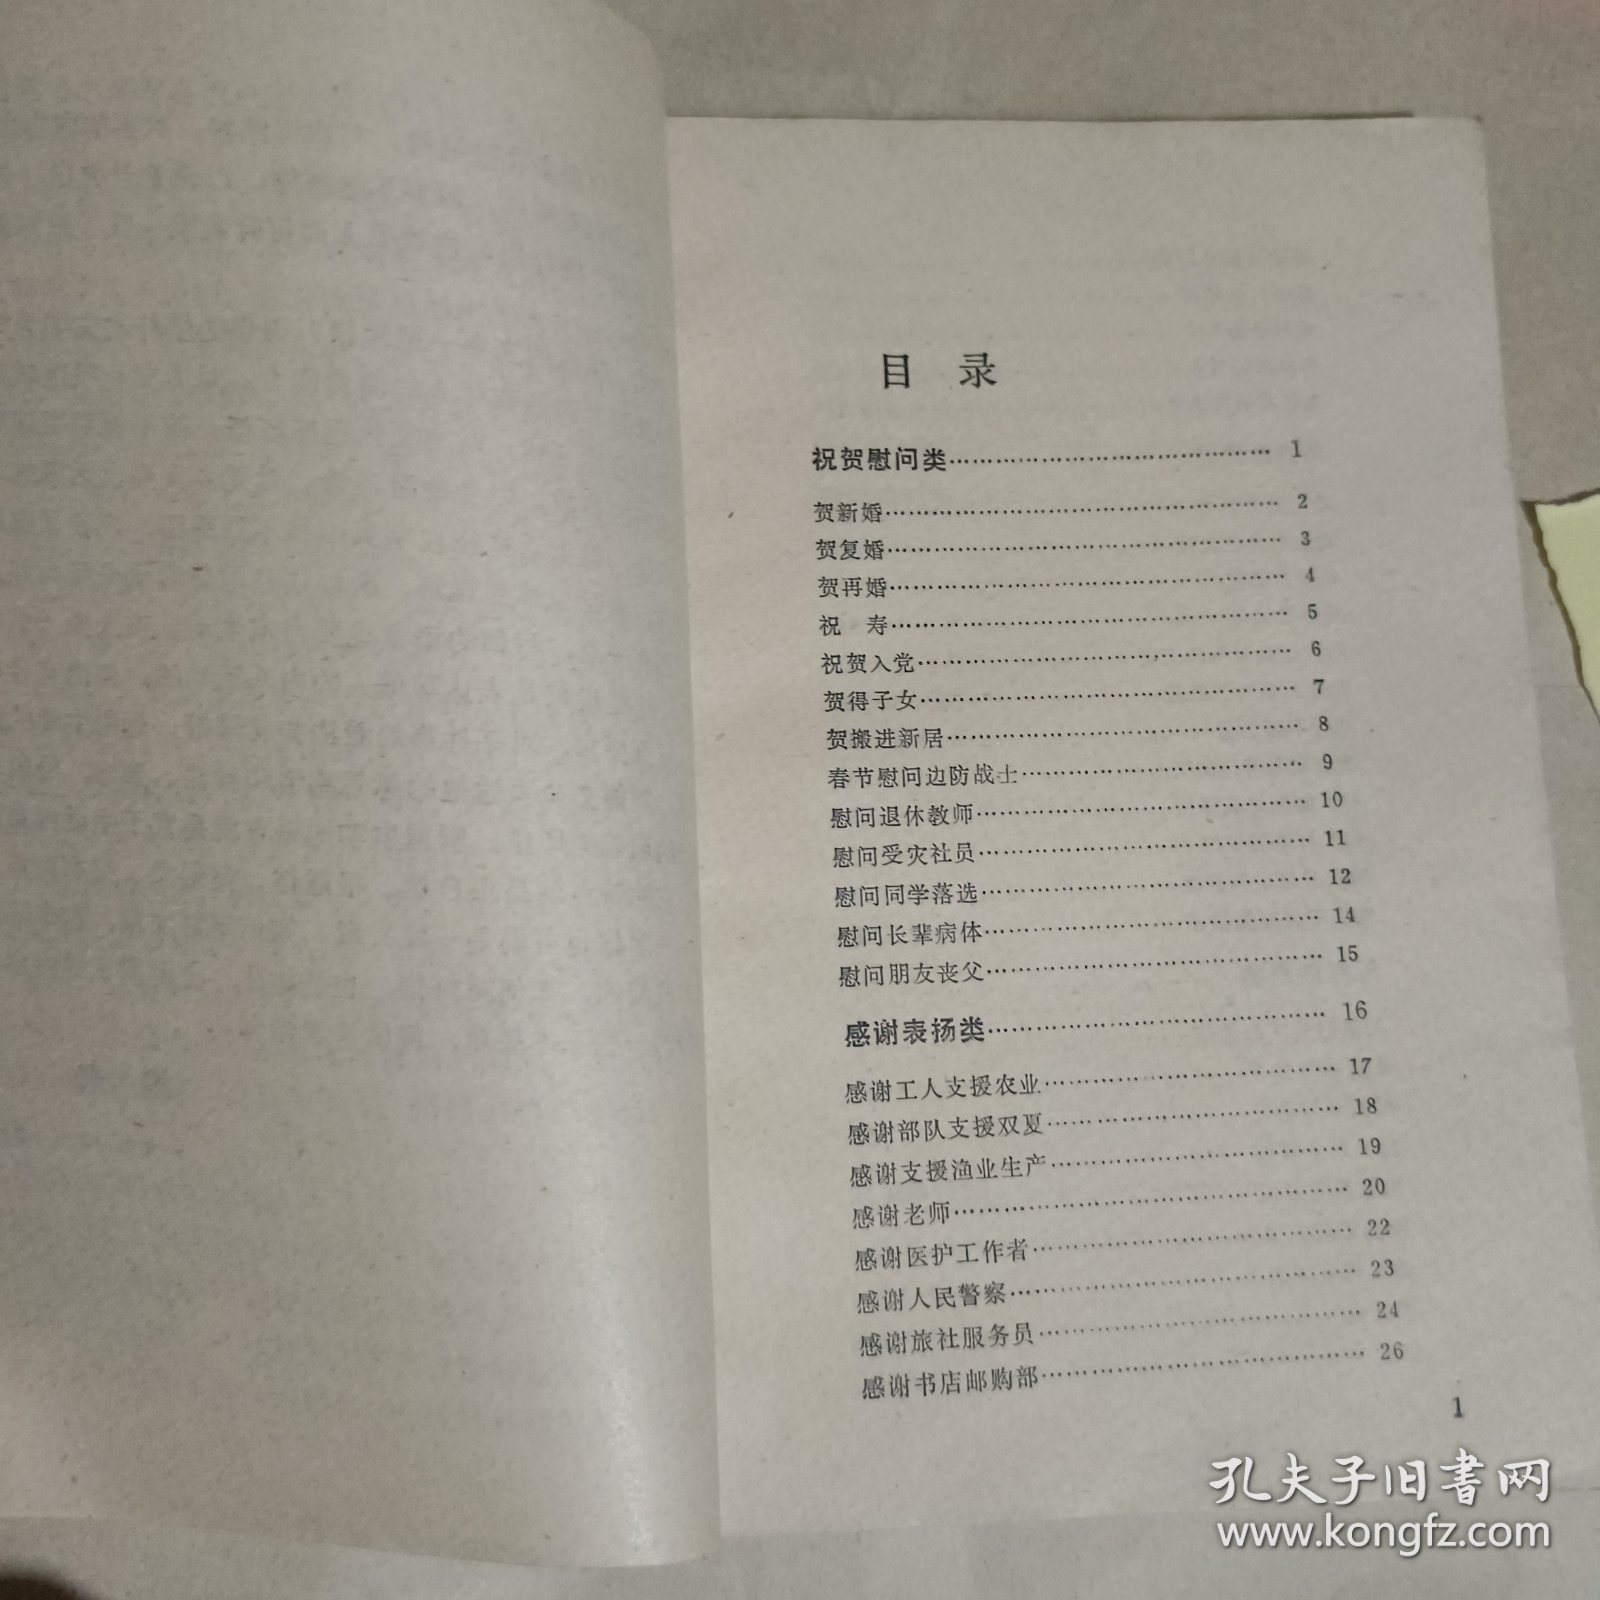 目 录
祝贺慰问类…………………………………… 1
贺新婚…………………………………………… 2
贺复婚…………………………………………… 3
贺再婚…………………………………………… 4
祝 寿…………………………………………… 5
祝贺入党………………………………………… 6
贺得子女………………………………………… 7
贺搬进新居……………………………………… 8
春节慰问边防战士……………………………… 9
慰问退休教师…………………………………… 10
慰问受灾社员…………………………………… 11
慰问同学落选…………………………………… 12
慰问长辈病体…………………………………… 14
慰问朋友丧父…………………………………… 15
感谢表扬类…………………………………… 16
感谢工人支援农业……………………………… 17
感谢部队支援双夏……………………………… 18
感谢支援渔业生产……………………………… 19
感谢老师………………………………………… 20
感谢医护工作者………………………………… 22
感谢人民警察…………………………………… 23
感谢旅社服务员………………………………… 24
感谢书店邮购部………………………………… 26
1
孔夫子旧书网
www.kongfz.com